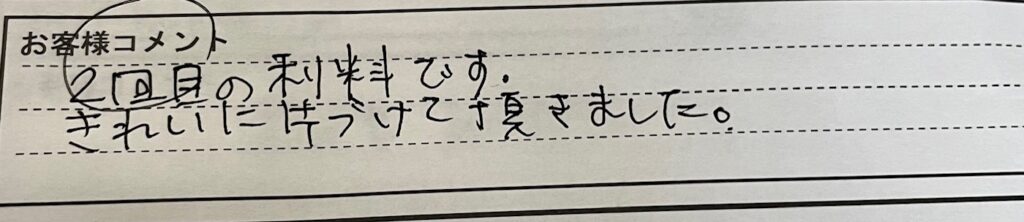 お客様コメント
2回目の利料です.
きれいに片づけて頂きました。